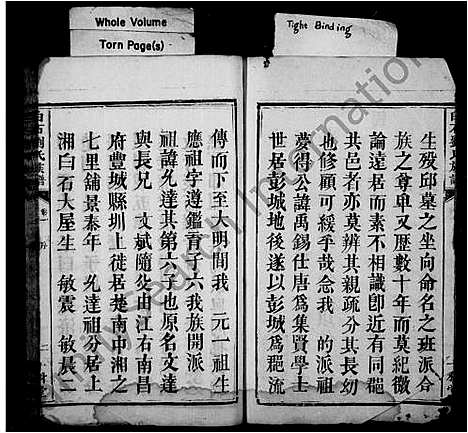 Whole Volume
Torn Page(s)
Tight Binding
生殁邱墓之坐向命名之班派合
族之尊卑又歷數十年而莫紀微
論遠居而素不相識卽近有同
其邑者亦莫辨其親疏分其長幼
也修顧可緩乎哉念我 的派祖
夢得公諱禹錫仕唐爲集賢學士
世居彭城地後遂以彭城爲 流
傳而下至大明間我 元一祖生
應祖字遵鑑 六六我族開派
祖諱允達其第六子也原名文達
與長兄 文斌隨父由江右南昌
府豐城縣圳上徙居楚南中湘之
七里舖景泰年 允達祖分居上
湘白石大屋生 敏震 敏辰二
白石劉氏 譜
FamilySearch International